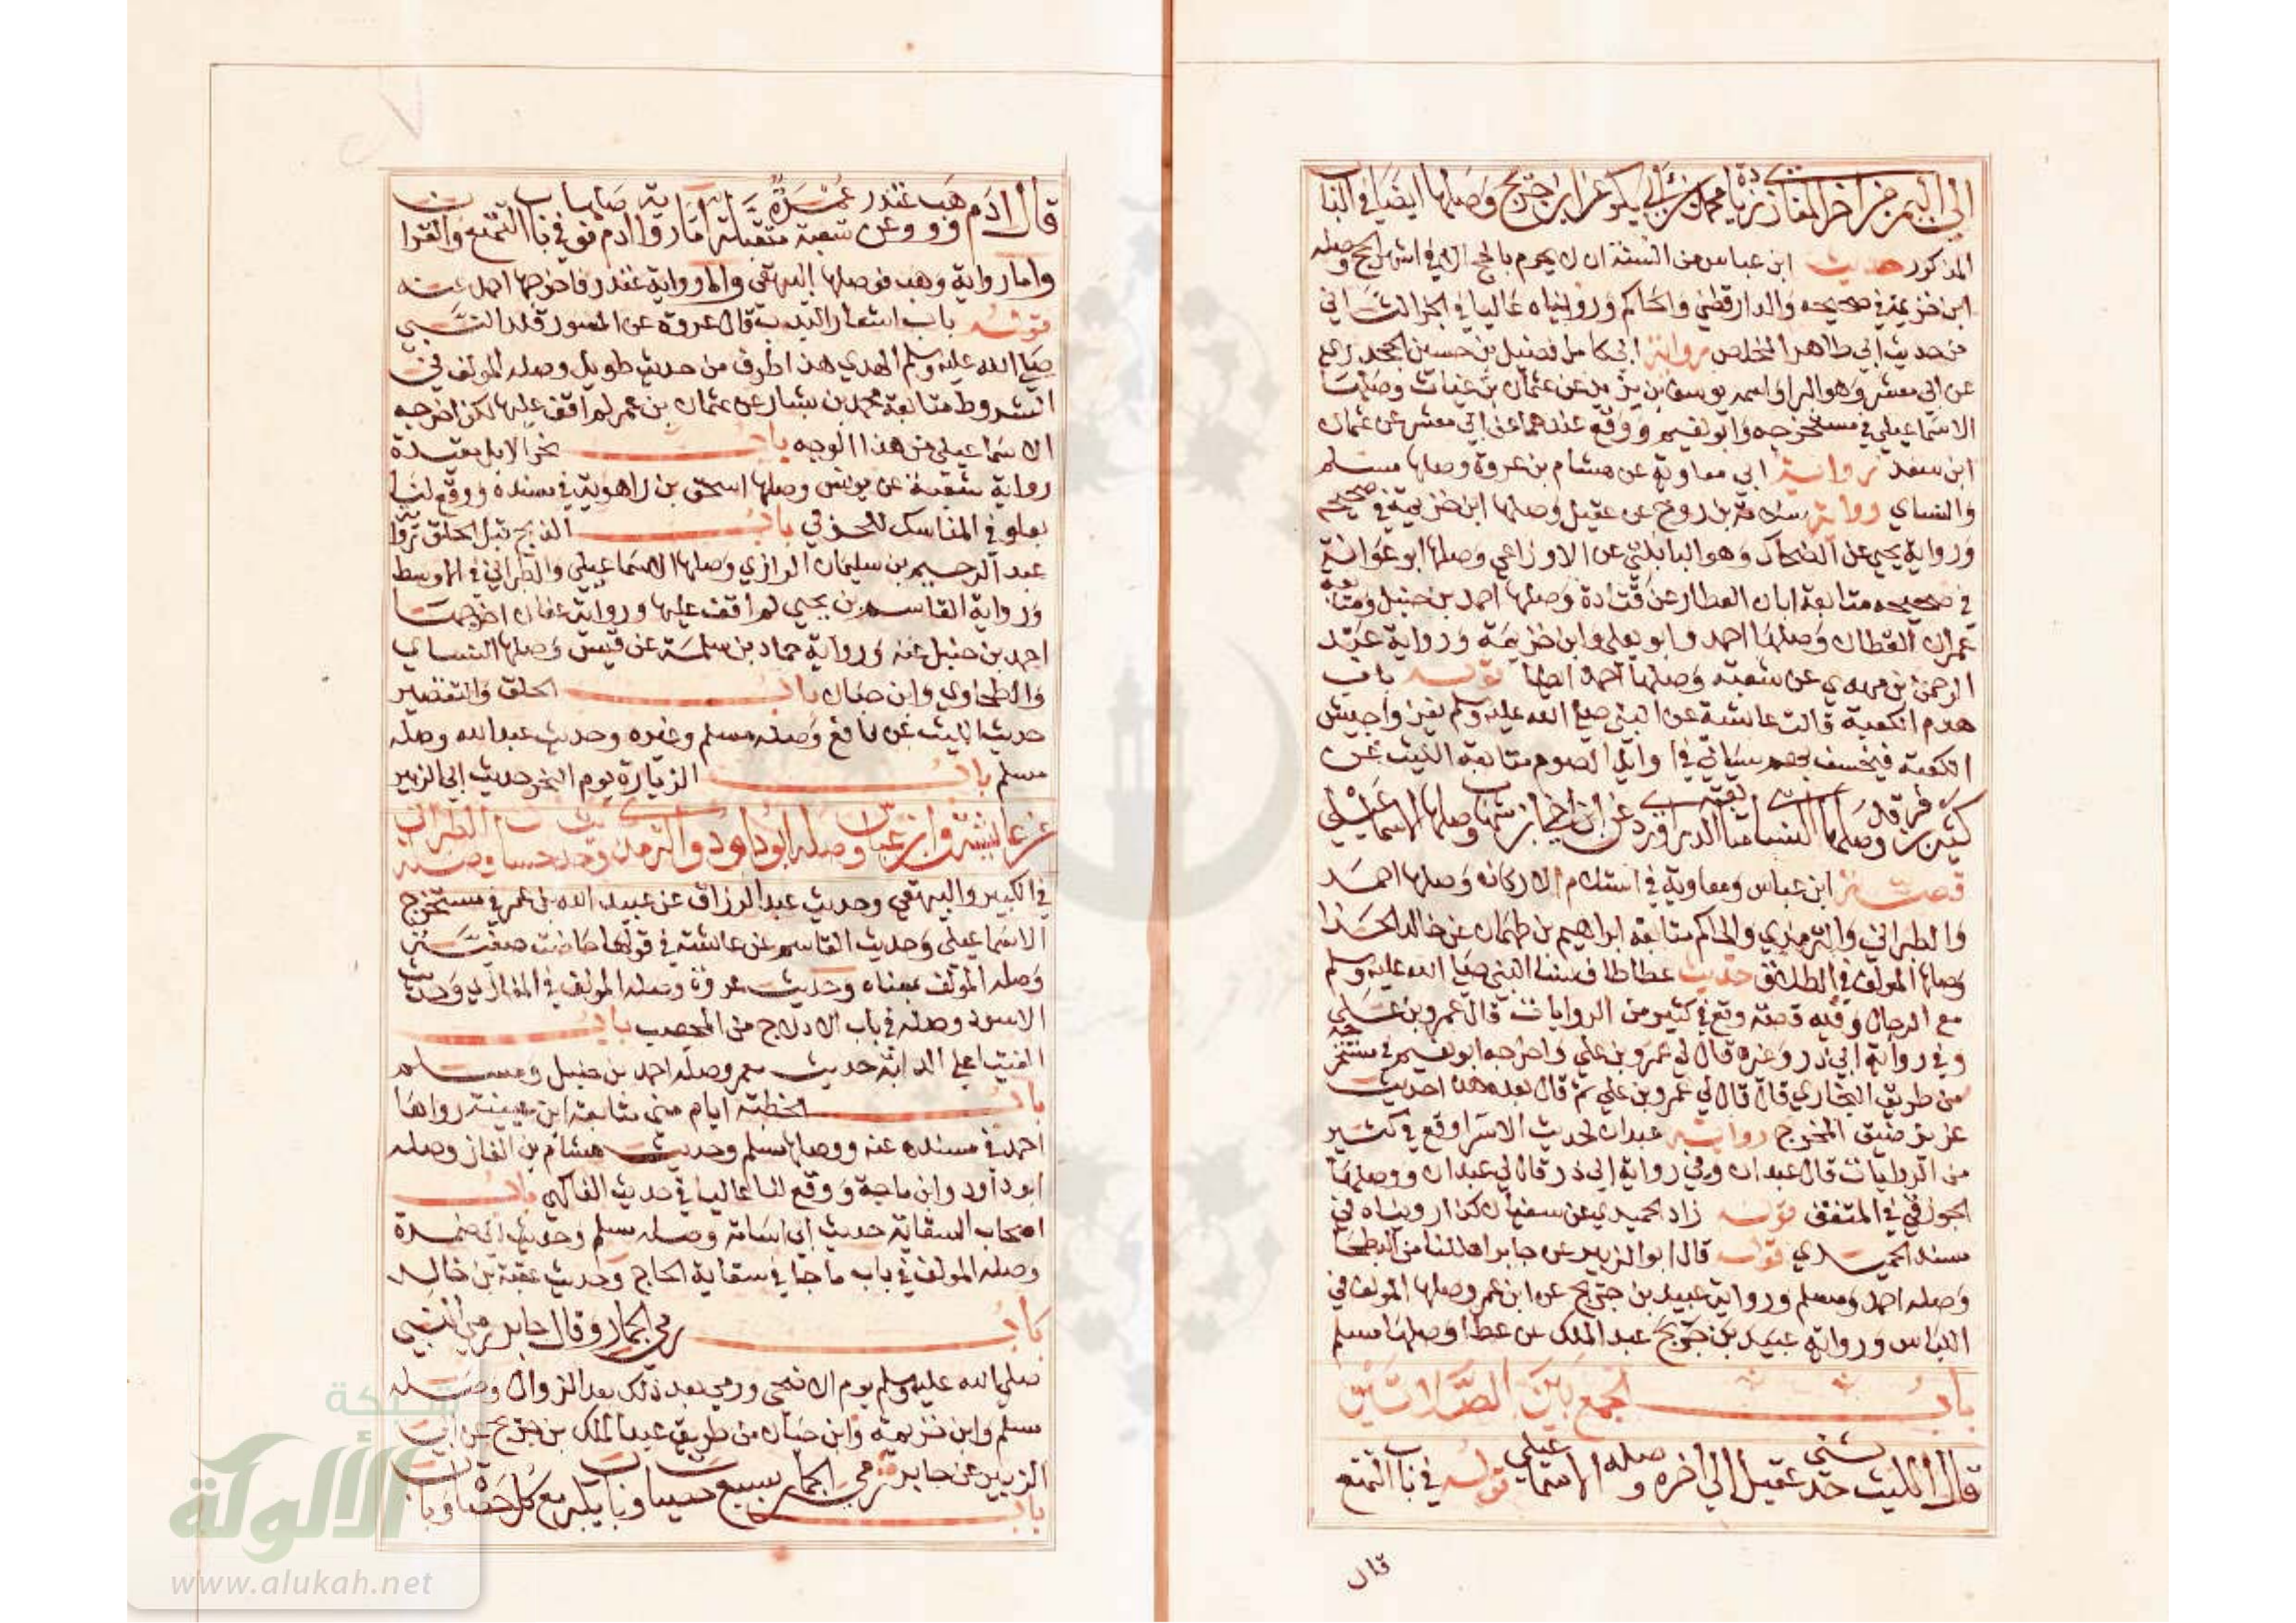 الى اليمن من اخر المغازي زيادة محمد بن بكر عن ابن جريج وصلها ايضا في الباب
المذكور حديث ابن عباس من السنة ان لا يحرم بالحج الا في اشهر الحج وصله
ابن خزيمة في صحيحه والدارقطني والحاكم ورويناه عاليا في الجز الثاني
من حديث ابي طاهر المخلص رواية ابي كامل فضيل بن حسين الجحدري
عن ابي معشر وهو البرا واسمه يوسف بن يزيد عن عثمان بن غياث وصلها
الاسماعيلي في مستخرجه وابو نعيم ووقع عندهما عن ابي معشر عن عثمان
ابن سعد رواية ابي معاوية عن هشام بن عروة وصلها مسلم
والنساي رواية سلامة بن روح عن عقيل وصلها ابن خزيمة في صحيحه
ورواية يحيى عن الضحاك وهو البابلتي عن الاوزاعي وصلها ابو عوانة
في صحيحه متابعة ابان العطار عن قتادة وصلها احمد بن حنبل ومتابعة
عمران القطان وصلها احمد وابو يعلى وابن خزيمة ورواية عبد
الرحمن بن مهدي عن شعبة وصلها احمد ايضا قوله باب
هدم الكعبة قالت عائشة عن النبي صلى الله عليه وسلم يغزوا جيش
الكعبة فيخسف بهم سياتي في اوايل الصوم متابعة الليث عن
كثير بن فرقد وصلها النسا متابعة الدراوردي عن ابن اخي ابن شهاب وصلها الاسماعيلي
قصة ابن عباس ومعاوية في استلام الاركان وصلها احمد
والطبراني والترمذي والحاكم متابعة ابراهيم بن طهمان عن خالد الحذا
وصلها المولف في الطلاق حديث عطا طاف نسا النبي صلى الله عليه وسلم
مع الرجال وفيه قصة وقع في كثير من الروايات قال عمرو بن علي
وفي رواية ابي ذر وغيره قال لي عمرو بن علي واخرجه ابو نعيم في مستخرجه
من طريق البخاري قال قال لي عمرو بن علي ثم قال بعده هذا حديث
عزيز ضيق المخرج رواية عبدان لحديث الاسرا وقع في كثير
من الروايات قال عبدان وفي رواية ابي ذر قال لي عبدان ووصلها
الجوزقي في المتفق قوله زاد الحميدي عن سفيان كذا رويناه في
مسند الحميدي قوله قال ابو الزبير عن جابر اهللنا من البطحا
وصله احمد ومسلم ورواية عبيد بن جريج عن ابن عمر وصلها المولف في
اللباس ورواية عبيد بن جريج عبد الملك عن عطا وصلها مسلم
باب الجمع بين الصلاتين
قال الليث حدثني عقيل الى اخره وصله الاسماعيلي قوله في باب التمتع
قال
قال ادم ووهب وغندر عن شعبة عمرة متقبلة اما رواية ادم فوصلها في باب التمتع والقران
واما رواية وهب فوصلها البيهقي واما رواية غندر فاخرجها احمد عنه
قوله باب اشعار البدن قال عروة عن المسور قلد النبي
صلى الله عليه وسلم الهدي هذا طرف من حديث طويل وصله المولف في
الشروط متابعة محمد بن بشار عن عثمان بن عمر لم اقف عليها لكن اخرجه
الاسماعيلي من هذا الوجه باب نحر الابل مقيدة
رواية شعبة عن يونس وصلها اسحق بن راهوية في مسنده ووقع لنا
بعلو في المناسك للحربي باب الذبح قبل الحلق رواية
عبد الرحيم بن سليمان الرازي وصلها الاسماعيلي والطبراني في الاوسط
ورواية القاسم بن يحيى لم اقف عليها ورواية عفان اخرجها
احمد بن حنبل عنه ورواية حماد بن سلمة عن قيس وصلها النساي
والطحاوي وابن حبان باب الحلق والتقصير
حديث الليث عن نافع وصله مسلم وغيره وحديث عبد الله وصله
مسلم باب الزيارة يوم النحر حديث ابي الزبير
عن عائشة وابن عباس وصله ابو داود والترمذي وحديث ابي حسان وصله الطبراني
في الكبير والبيهقي وحديث عبد الرزاق عن عبيد الله بن عمر في مستخرج
الاسماعيلي وحديث القاسم عن عائشة في قولها حاضت صفية
وصله المولف بمعناه وحديث عروة وصله المولف في المغازي وحديث
الاسود وصله في باب الادلاج من المحصب باب
الفتيا على الدابة حديث معمر وصله احمد بن حنبل ومسلم
باب الخطبة ايام منى متابعة ابن عيينة رواها
احمد في مسنده عنه ووصلها مسلم وحديث هشام بن الغاز وصله
ابو داود وابن ماجة ووقع لنا عاليا في حديث الفاكهي باب
اصحاب السقاية حديث ابي اسامة وصله مسلم وحديث ابي ضمرة
وصله المولف في باب ما جا في سقاية الحاج وحديث عقبة بن خالد
باب رمي الجمار وقال جابر رمى النبي
صلى الله عليه وسلم يوم الاضحى ورمى بعد ذلك بعد الزوال وصله
مسلم وابن خزيمة وابن حبان من طريق عبد الملك بن جريج عن ابي
الزبير عن جابر باب رمي الجمار بسبع حصيات وباب يكبر مع كل حصاة وباب
شبكة
الألوكة
www.alukah.net